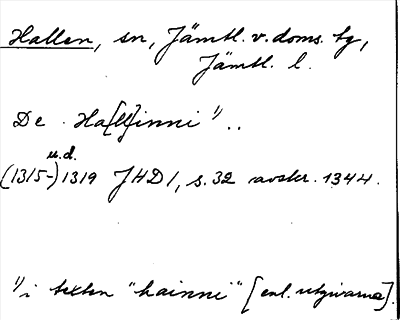 Hallen, sn, Jämtl. v. doms. tg,
Jämtl. l.
De Ha[ll]inni ¹⁾ ..
u.d.
(1315-) 1319 JHD 1, s. 32 avskr. 1344.
¹⁾ i texten "hainni" [enl. utgivarna].